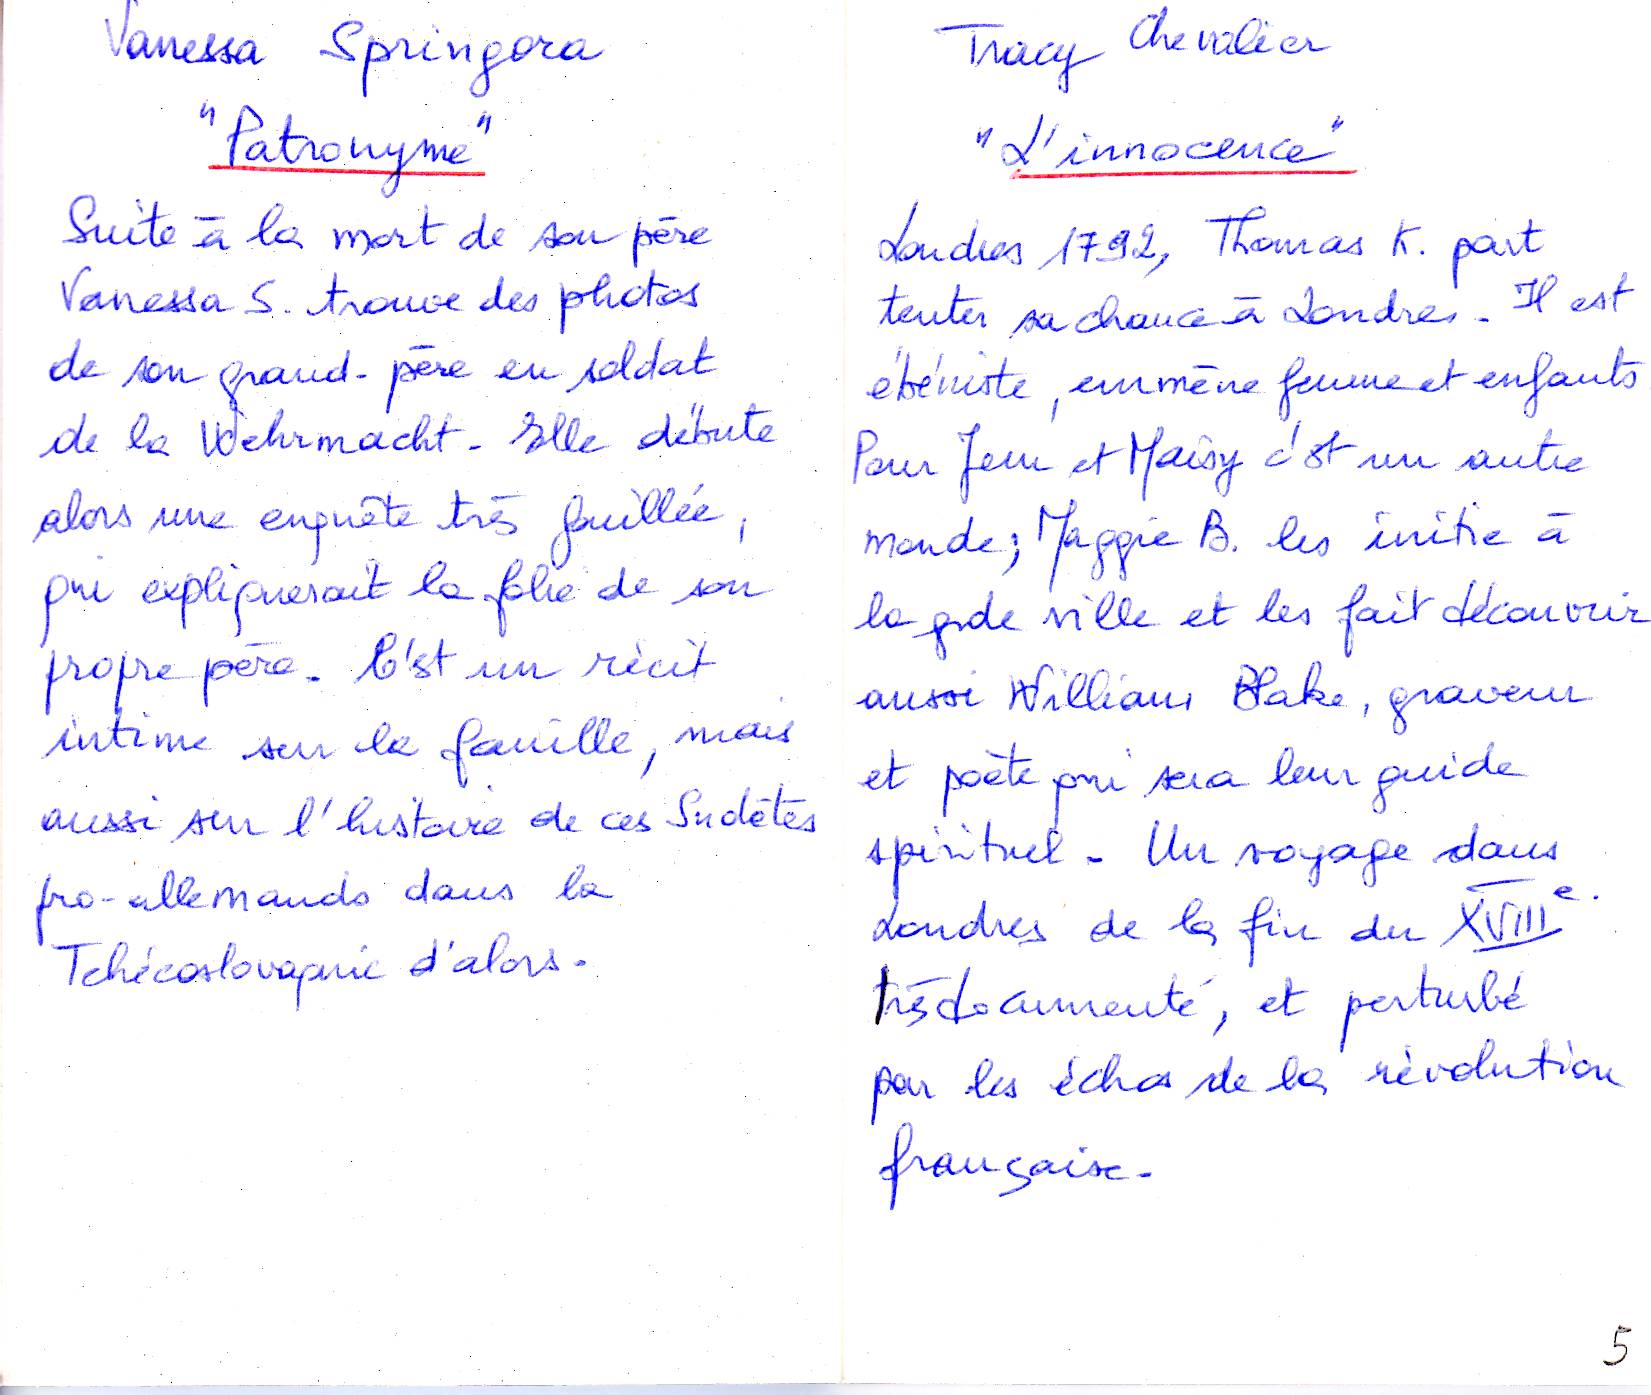 Vanessa Springora
"Patronyme"
Suite à la mort de son père
Vanessa S. trouve des photos
de son grand-père en soldat
de la Wehrmacht. Elle débute
alors une enquête très fouillée,
qui expliquerait la folie de son
propre père. C'est un récit
intime sur la famille, mais
aussi sur l'histoire de ces Sudètes
pro-allemands dans la
Tchécoslovaquie d'alors.
Tracy Chevalier
"L'innocence"
Londres 1792, Thomas K. part
tenter sa chance à Londres. Il est
ébéniste, emmène femme et enfants
Pour Jem et Maisy c'est un autre
monde; Maggie B. les initie à
la gde ville et les fait découvrir
aussi William Blake, graveur
et poète qui sera leur guide
spirituel. Un voyage dans
Londres de la fin du XVIIIe.
très documenté, et perturbé
par les échos de la révolution
française.
5